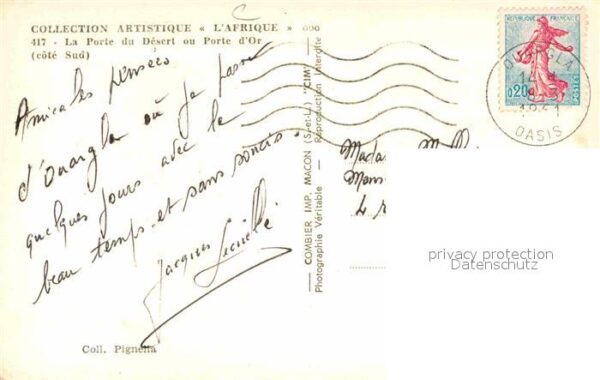 C
COLLECTION ARTISTIQUE « L'AFRIQUE »
417 - La Porte du Désert ou Porte d'Or
(côté Sud)
Amicales pensées
d'Ouargla où je passe
quelques jours avec le
beau temps et sans soucis.
Jacques
Coll. Pignella
COMBIER IMP. MACON (S.-et-L.) "CIM"
Photographie Véritable - Reproduction Interdite
REPUBLIQUE FRANÇAISE
0,20
POSTES
OUARGLA
OASIS
Madame
4
privacy protection
Datenschutz